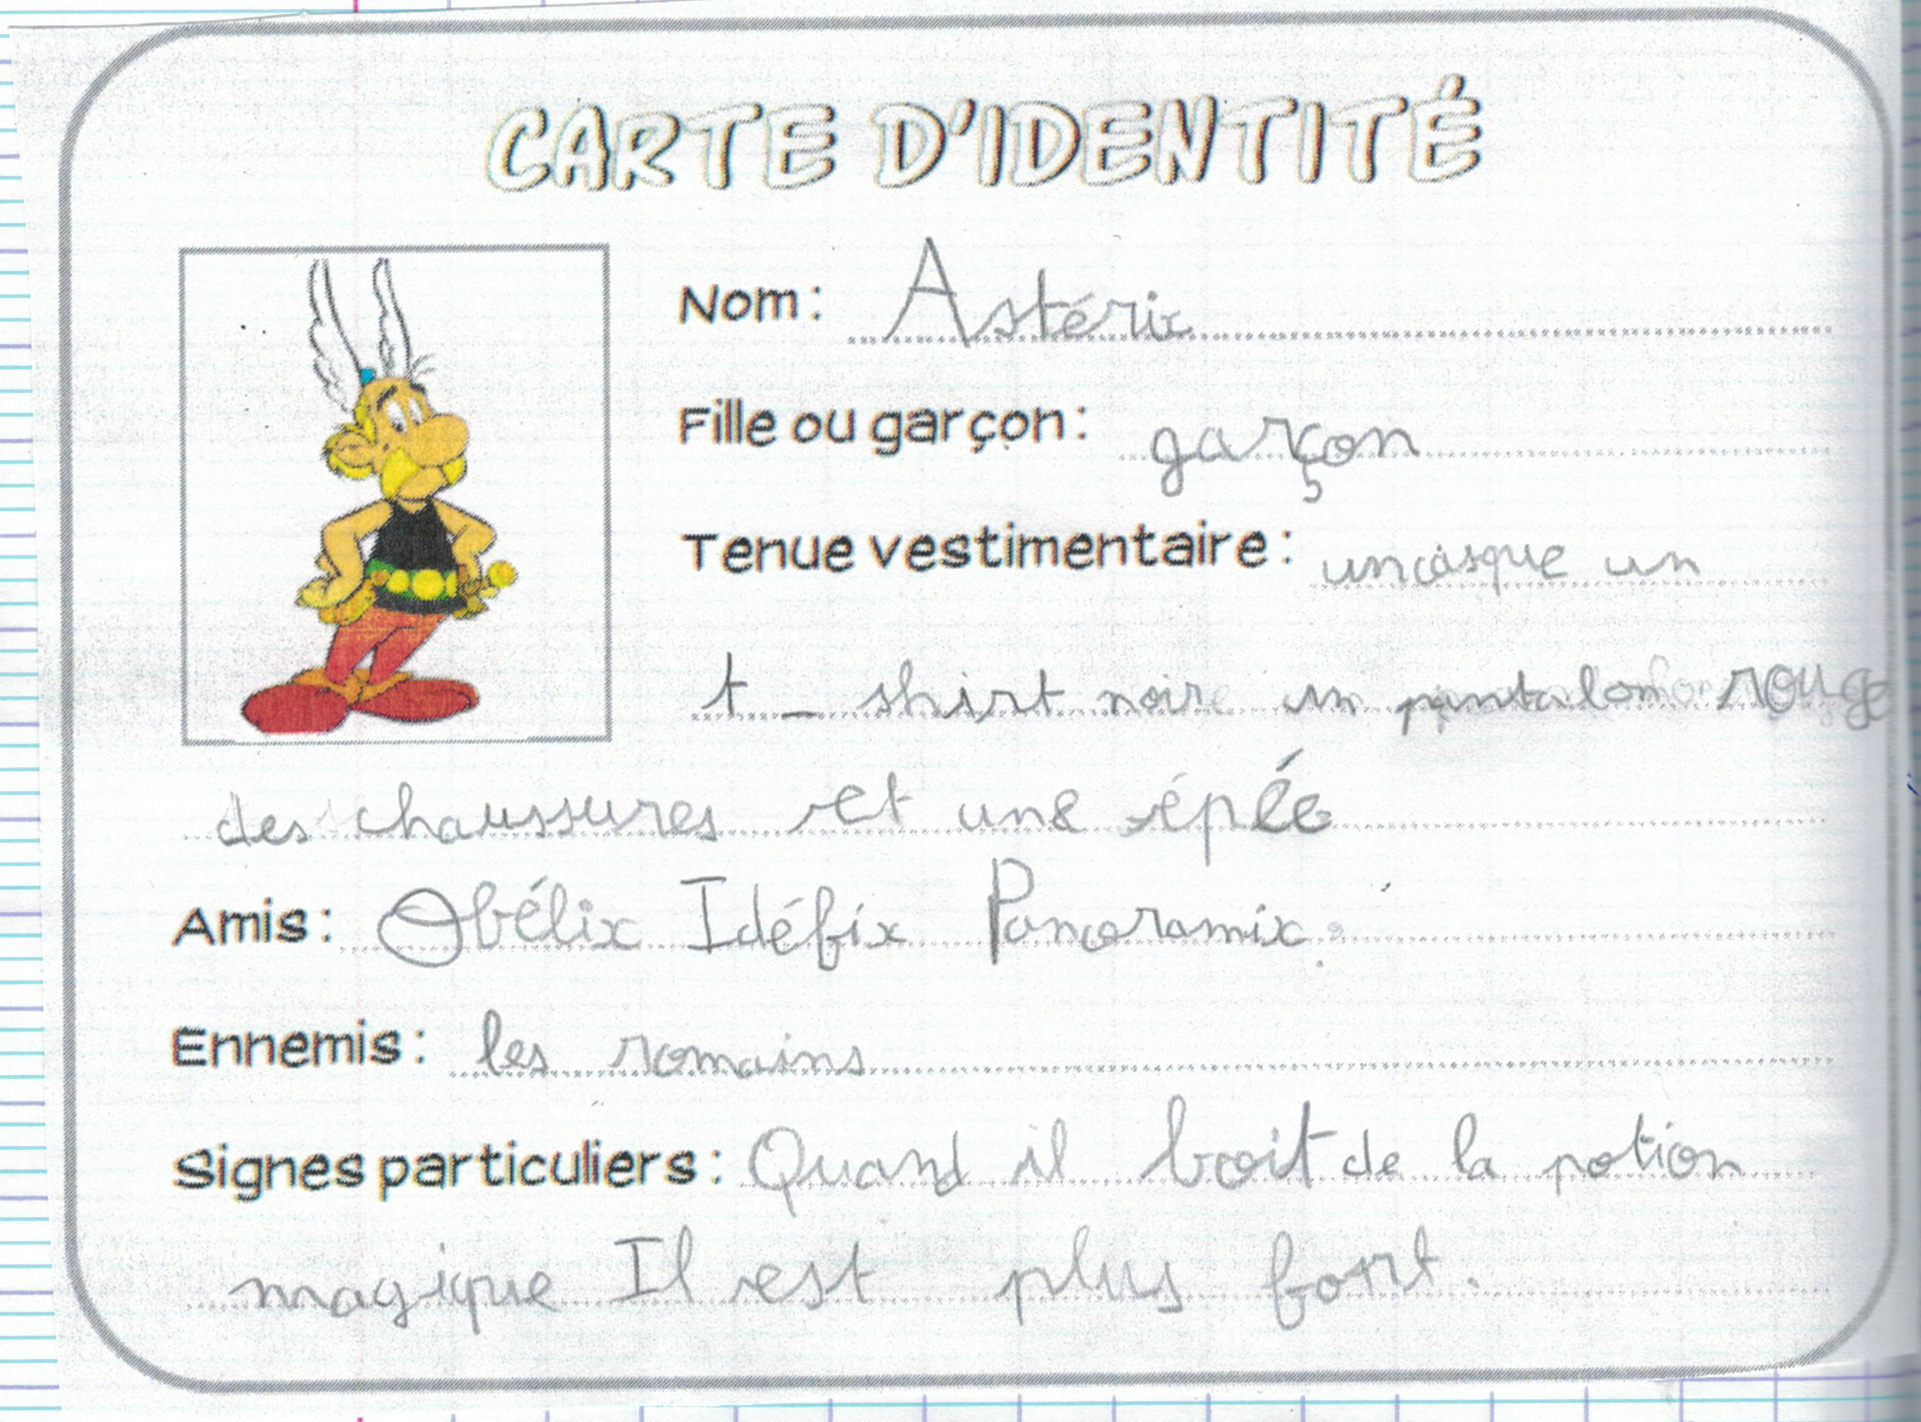 CARTE D'IDENTITÉ
Nom : Astérix
Fille ou garçon : garçon
Tenue vestimentaire : un casque un
t_shirt noir un pantalon rouge
des chaussures et une épée
Amis : Obélix Idéfix Panoramix.
Ennemis : les romains
Signes particuliers : Quand il boit de la potion
magique Il est plus fort.